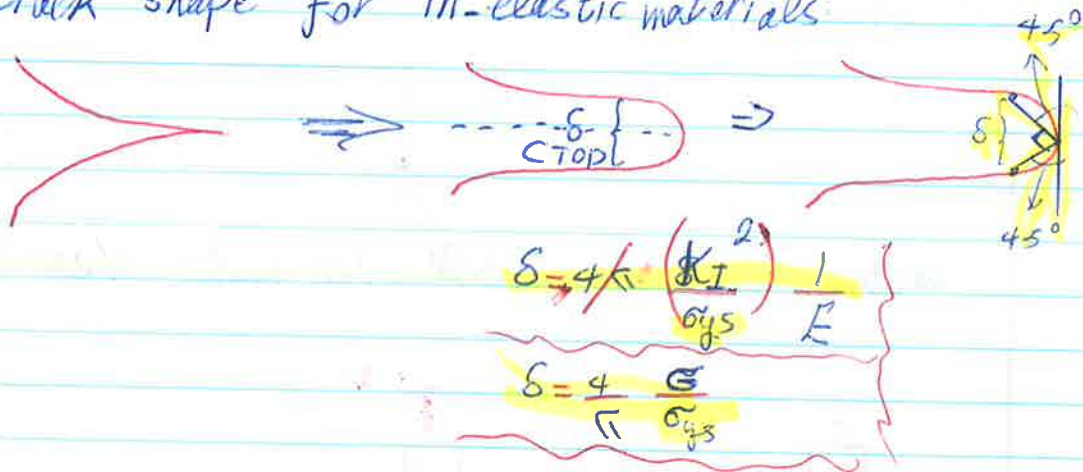 shape for in-elastic materials
45°
δ
CTOD
δ
45°
δ = 4/π (K_I²/σ_ys) 1/E
δ = 4/π G/σ_ys